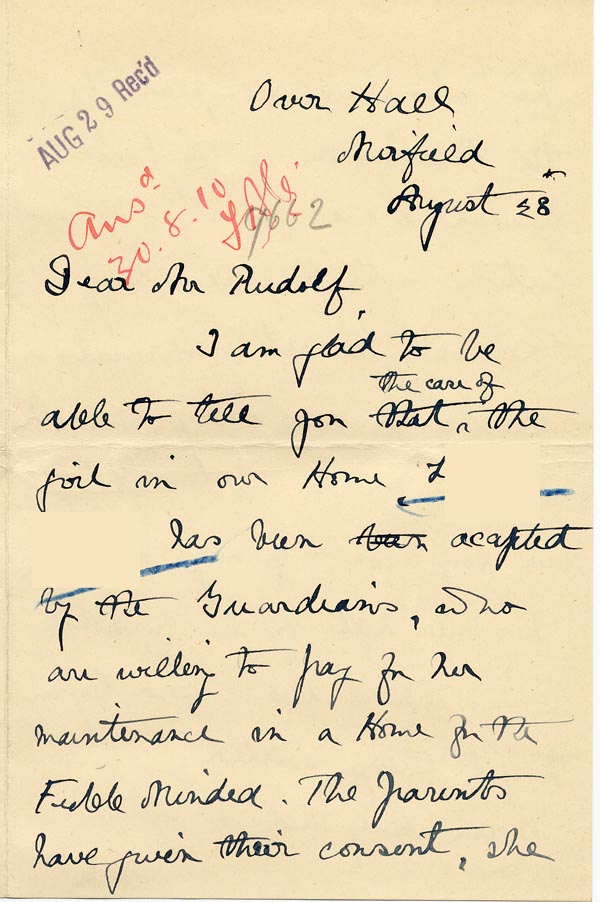 AUG 29 Rec'd
Over Hall
Mirfield
August 28th
Ansd
30.8.10
9662
Dear Mr Rudolf,
I am glad to be
the care of
able to tell you that ^ the
girl in our Home L
has been been accepted
by the Guardians, who
are willing to pay for her
maintenance in a Home for the
Feeble Minded. The parents
have given their consent, she